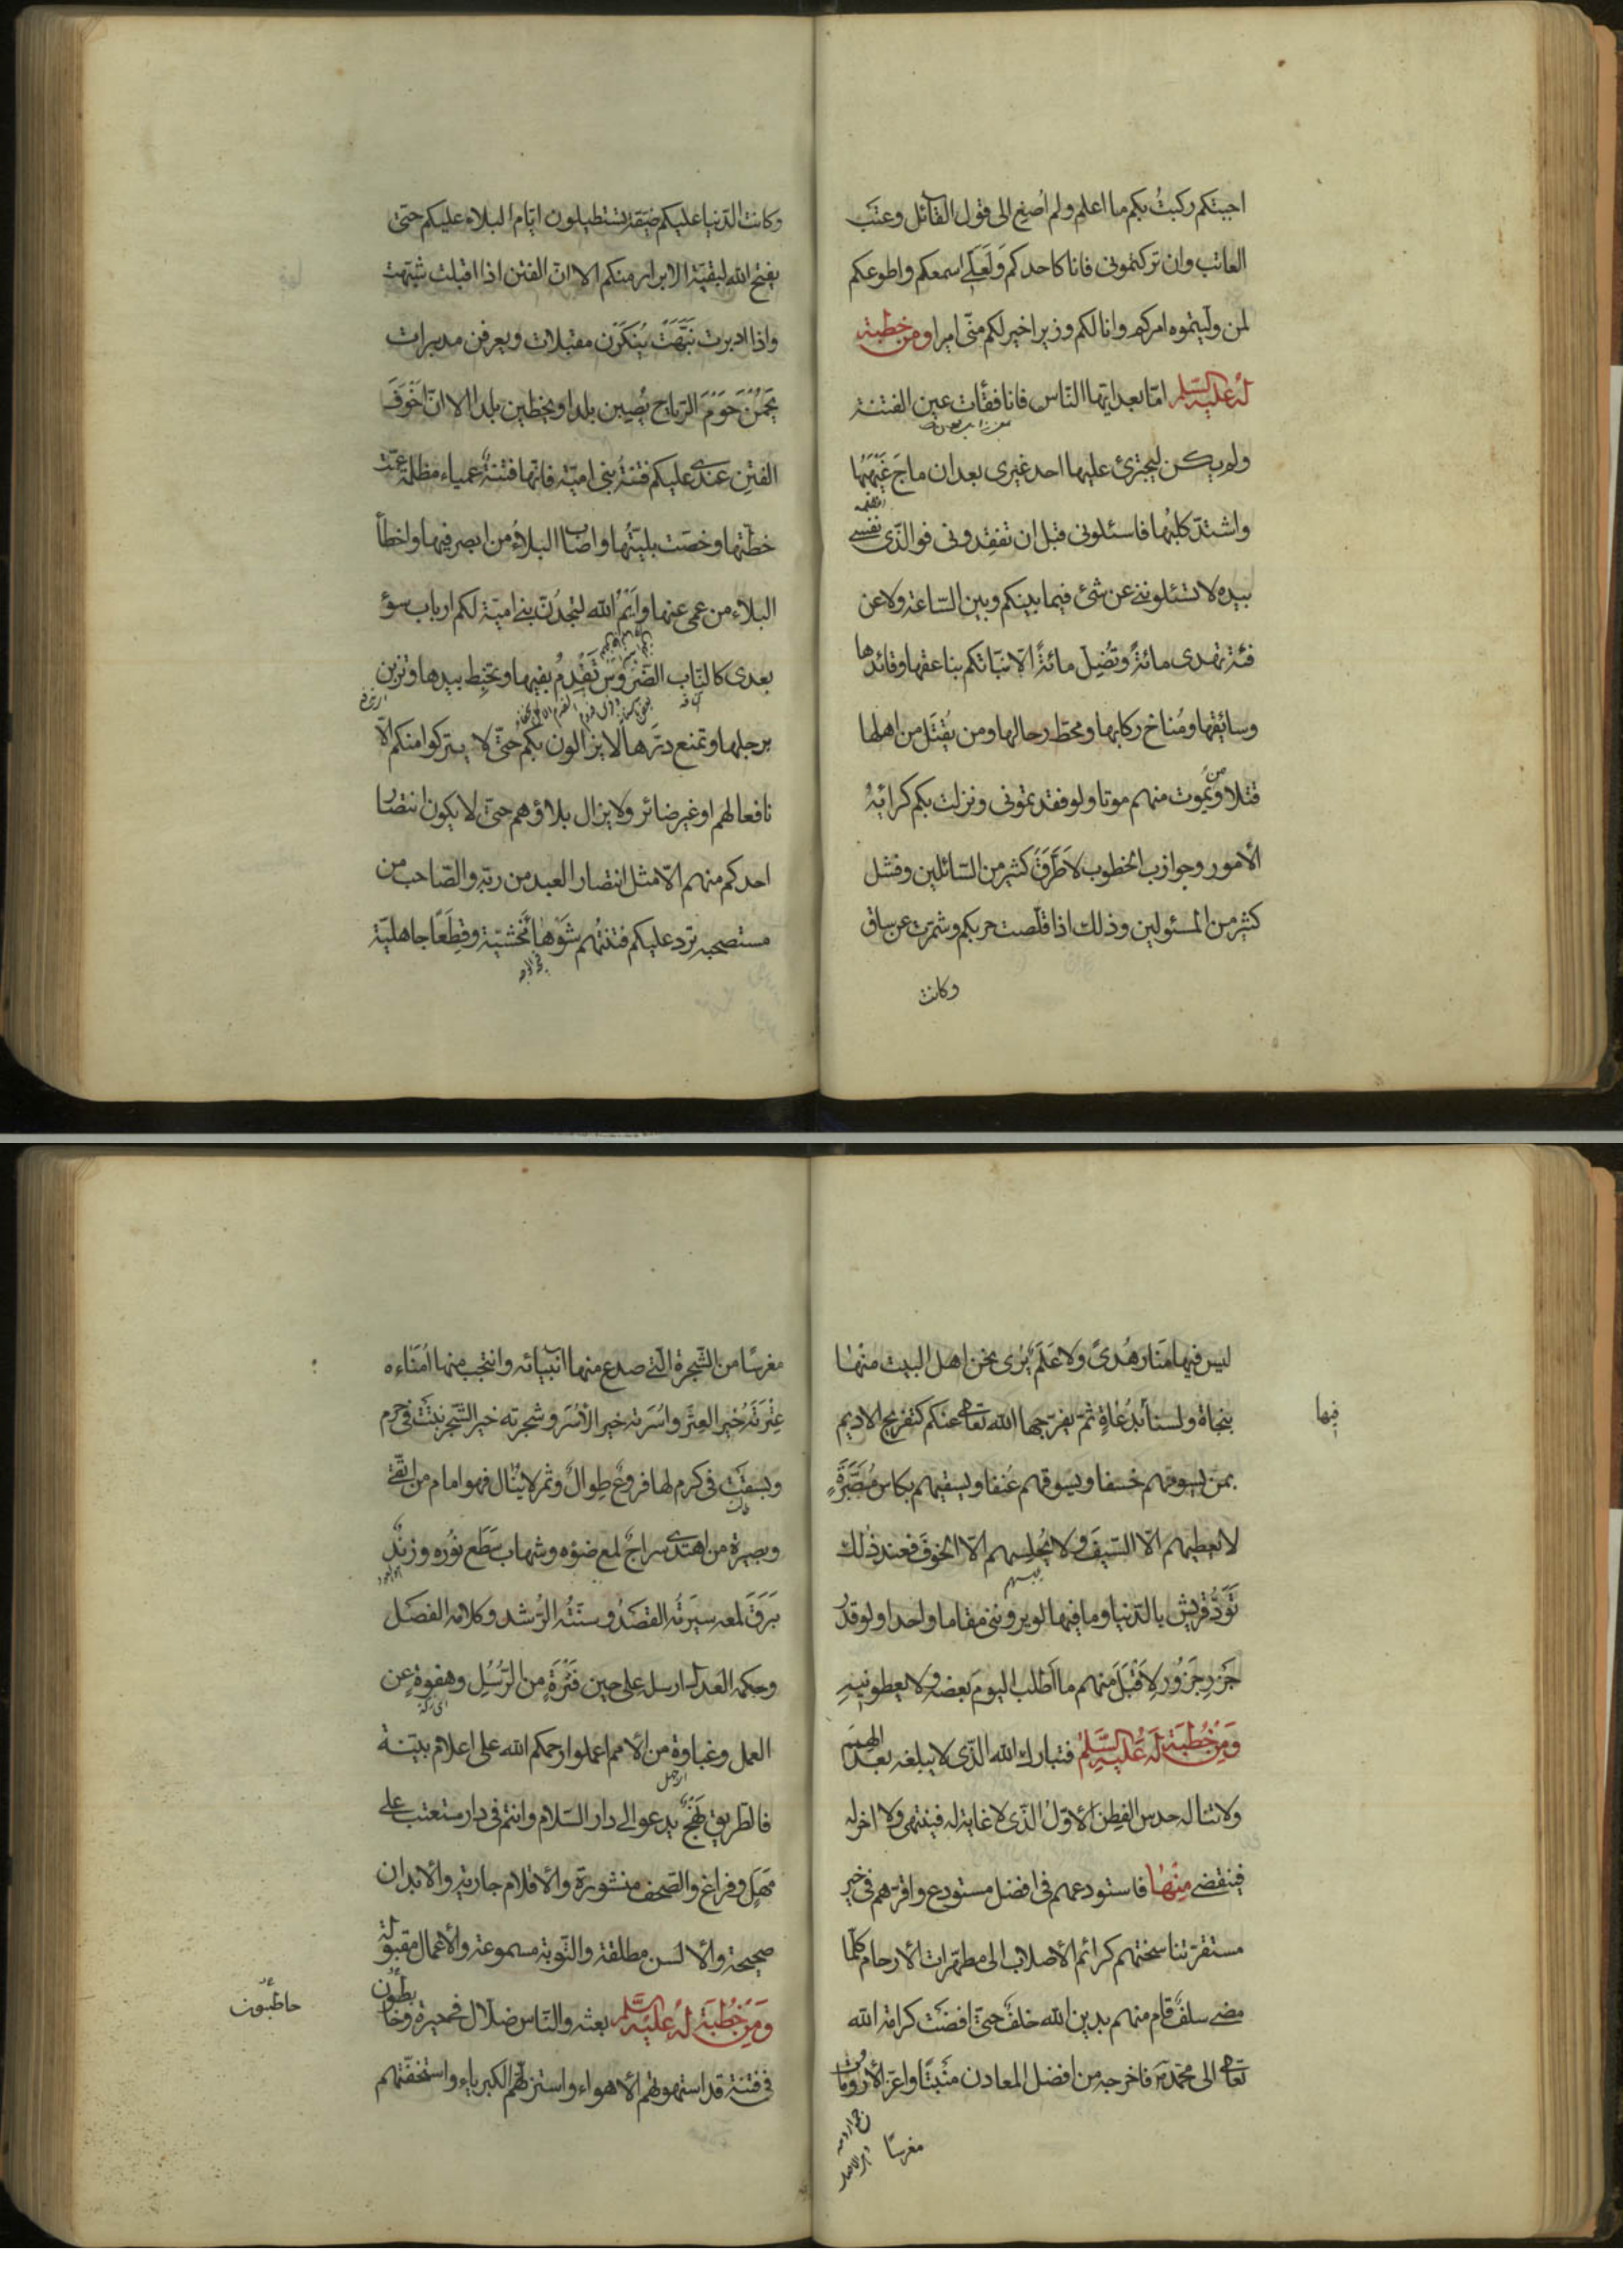 اجبتكم ركبتُ بكم ما اعلم ولم اُصغ الى قول القآئل وعتَب
العاتب وان تركتمونى فانا كاحدكم ولَعَلّى اسمعكم واطوعكم
لمن ولّيتموه امركم وانا لكم وزيرا خير لكم منّى اميرا ومن خطبة
له عليه السّلم امّا بعد ايّها النّاس فانا فقأت عين الفتنة
ولم يكن ليجترئ عليها احد غيرى بعد ان ماجَ غَيهَبُها
واشتدّ كلَبُها فاسئلونى قبل ان تفقِدونى فوالّذى نفسى
بيده لا تسئلوننى عن شئ فيما بينكم وبين السّاعة ولا عن
فئة تهدى مائةً وتُضِلّ مائةً الّا نبّاتكم بناعقها وقائدها
وسائقها ومُناخ ركابها ومحطّ رحالها ومن يُقتَل من اهلها
قتلا ومن يَموت منهم موتا ولو فقدتمونى ونزلت بكم كرائهُ
الأمور وحوازب الخطوب لاَطرَقَ كثير من السّائلين وفشل
كثير من المسئولين وذلك اذا قلّصت حربكم وشمّرت عن ساق
وكانت
وكانت الدّنيا عليكم ضيقا تستطيلون ايّام البلاء عليكم حتّى
يفتح الله لبقيّة الابرار منكم الا انّ الفتن اذا اقبلت شبّهت
واذا ادبرت نبَّهَت يُنكَرن مقبلات ويعرفن مدبرات
يَحُمنَ حَومَ الرّياح يُصِبن بلدا ويخطين بلدا الا انّ اخوَفَ
الفتِن عندى عليكم فتنةُ بنى اميّة فانّها فتنةٌ عمياء مظلمة عمّت
خطّتها وخصّت بليّتُها واصاب البلاءُ من ابصر فيها واخطأ
البلاء من عمى عنها وايمُ الله لتجدُنّ بنى اميّة لكم ارباب سوؤ
بعدى كالنّاب الضّروس تَعْذِمُ بفيها وتخبِط بيدها وتزبن
برجلها وتمنع درّها لا يزالون بكم حتّى لا يتركوا منكم الّا
نافعا لهم او غير ضائر ولا يزال بلاؤهم حتّى لا يكون انتصار
احدكم منهم الّا مثل انتصار العبد من ربّه والصّاحب من
مستصحبه ترد عليكم فتنتُهم شَوهاً مَخشيّة وقِطَعًا جاهليّة
ليس فيها منَار هُدىً ولا عَلَمٌ يُرى نحن اهل البيت منها
فيها
بنجاة ولسنا بدُعَاةٍ ثمّ يفرّجها الله تعالى عنكم كتفريج الاديم
بمن يسومهم خسفا ويسوقهم عُنفا ويسقيهم بكاس مُصَبَّرةٍ
لا يُعطيهم الّا السّيف ولا يُحلِسهم الّا الخوف فعند ذلك
تَوَدُّ قريش بالدّنيا وما فيها لو يروننى مقاما واحدا ولو قدر
جَزرِ جَزُور لِاَقبَل منهم ما اَطلب اليوم بَعضه ولا يعطونيهِ
وَمِن خُطبَة لَه عَلَيهِ السَّلمُ فتبارك الله الّذى لا يبلغه بعد الهمَم
ولا تناله حدس الفِطن الأوّل الّذى لا غاية له فينتهى ولا اخر له
فينقضى مِنهَا فاستودعهم فى افضل مستودع واقرّهم فى خير
مستقرّ تناسختهم كرائم الأصلاب الى مطهّرات الأرحام كلّما
مضى سلفٌ قام منهم بدين الله خلفٌ حتّى افضَت كرامة الله
تعالى الى محمّد فاخرجه من افضل المعادن منَبتًا واعزّ الأرومات
مغرسًا
مغرسًا من الشّجرة الّتى صدع منها انبيائه وانتجب منها اُمَنَاءه
عِترَتُه خير العِتَر واُسرَته خير الاُسَر وشجرته خير الشّجر نبتَت فى حرم
وبسقَت فى كرم لها فروعٌ طِوالٌ وثمر لا يُنال فهو امام من اتّقى
وبصيرة من اهتدى سراجٌ لمع ضوؤه وشهاب سَطع نُوره وزندٌ
بَرَقَ لمعه سيرتُه القصَدُ وسنّتُه الرّشد وكلامه الفصَل
وحكمه العَدل ارسله على حين فَترَةٍ من الرّسُل وهفوة عن
العمل وغباوة من الأمم اعملوا رحمكم الله على اعلام بيّنة
فالطّريق نَهجٌ يدعو الى دار السّلام وانتم فى دار مستعتب على
مَهَل وفراغ والصّحف منشورة والأقلام جارية والأبدان
صحيحة والألسن مطلقة والتّوبة مسموعة والأعمال مقبولة
وَمِن خُطبَة لَه عَليه السّلم بعثه والنّاس ضلّال فى حيرة وخابطون
حاطبُون
فى فتنة قد استهوتهم الأهواء واستزلّهم الكبرياء واستخفّتهم